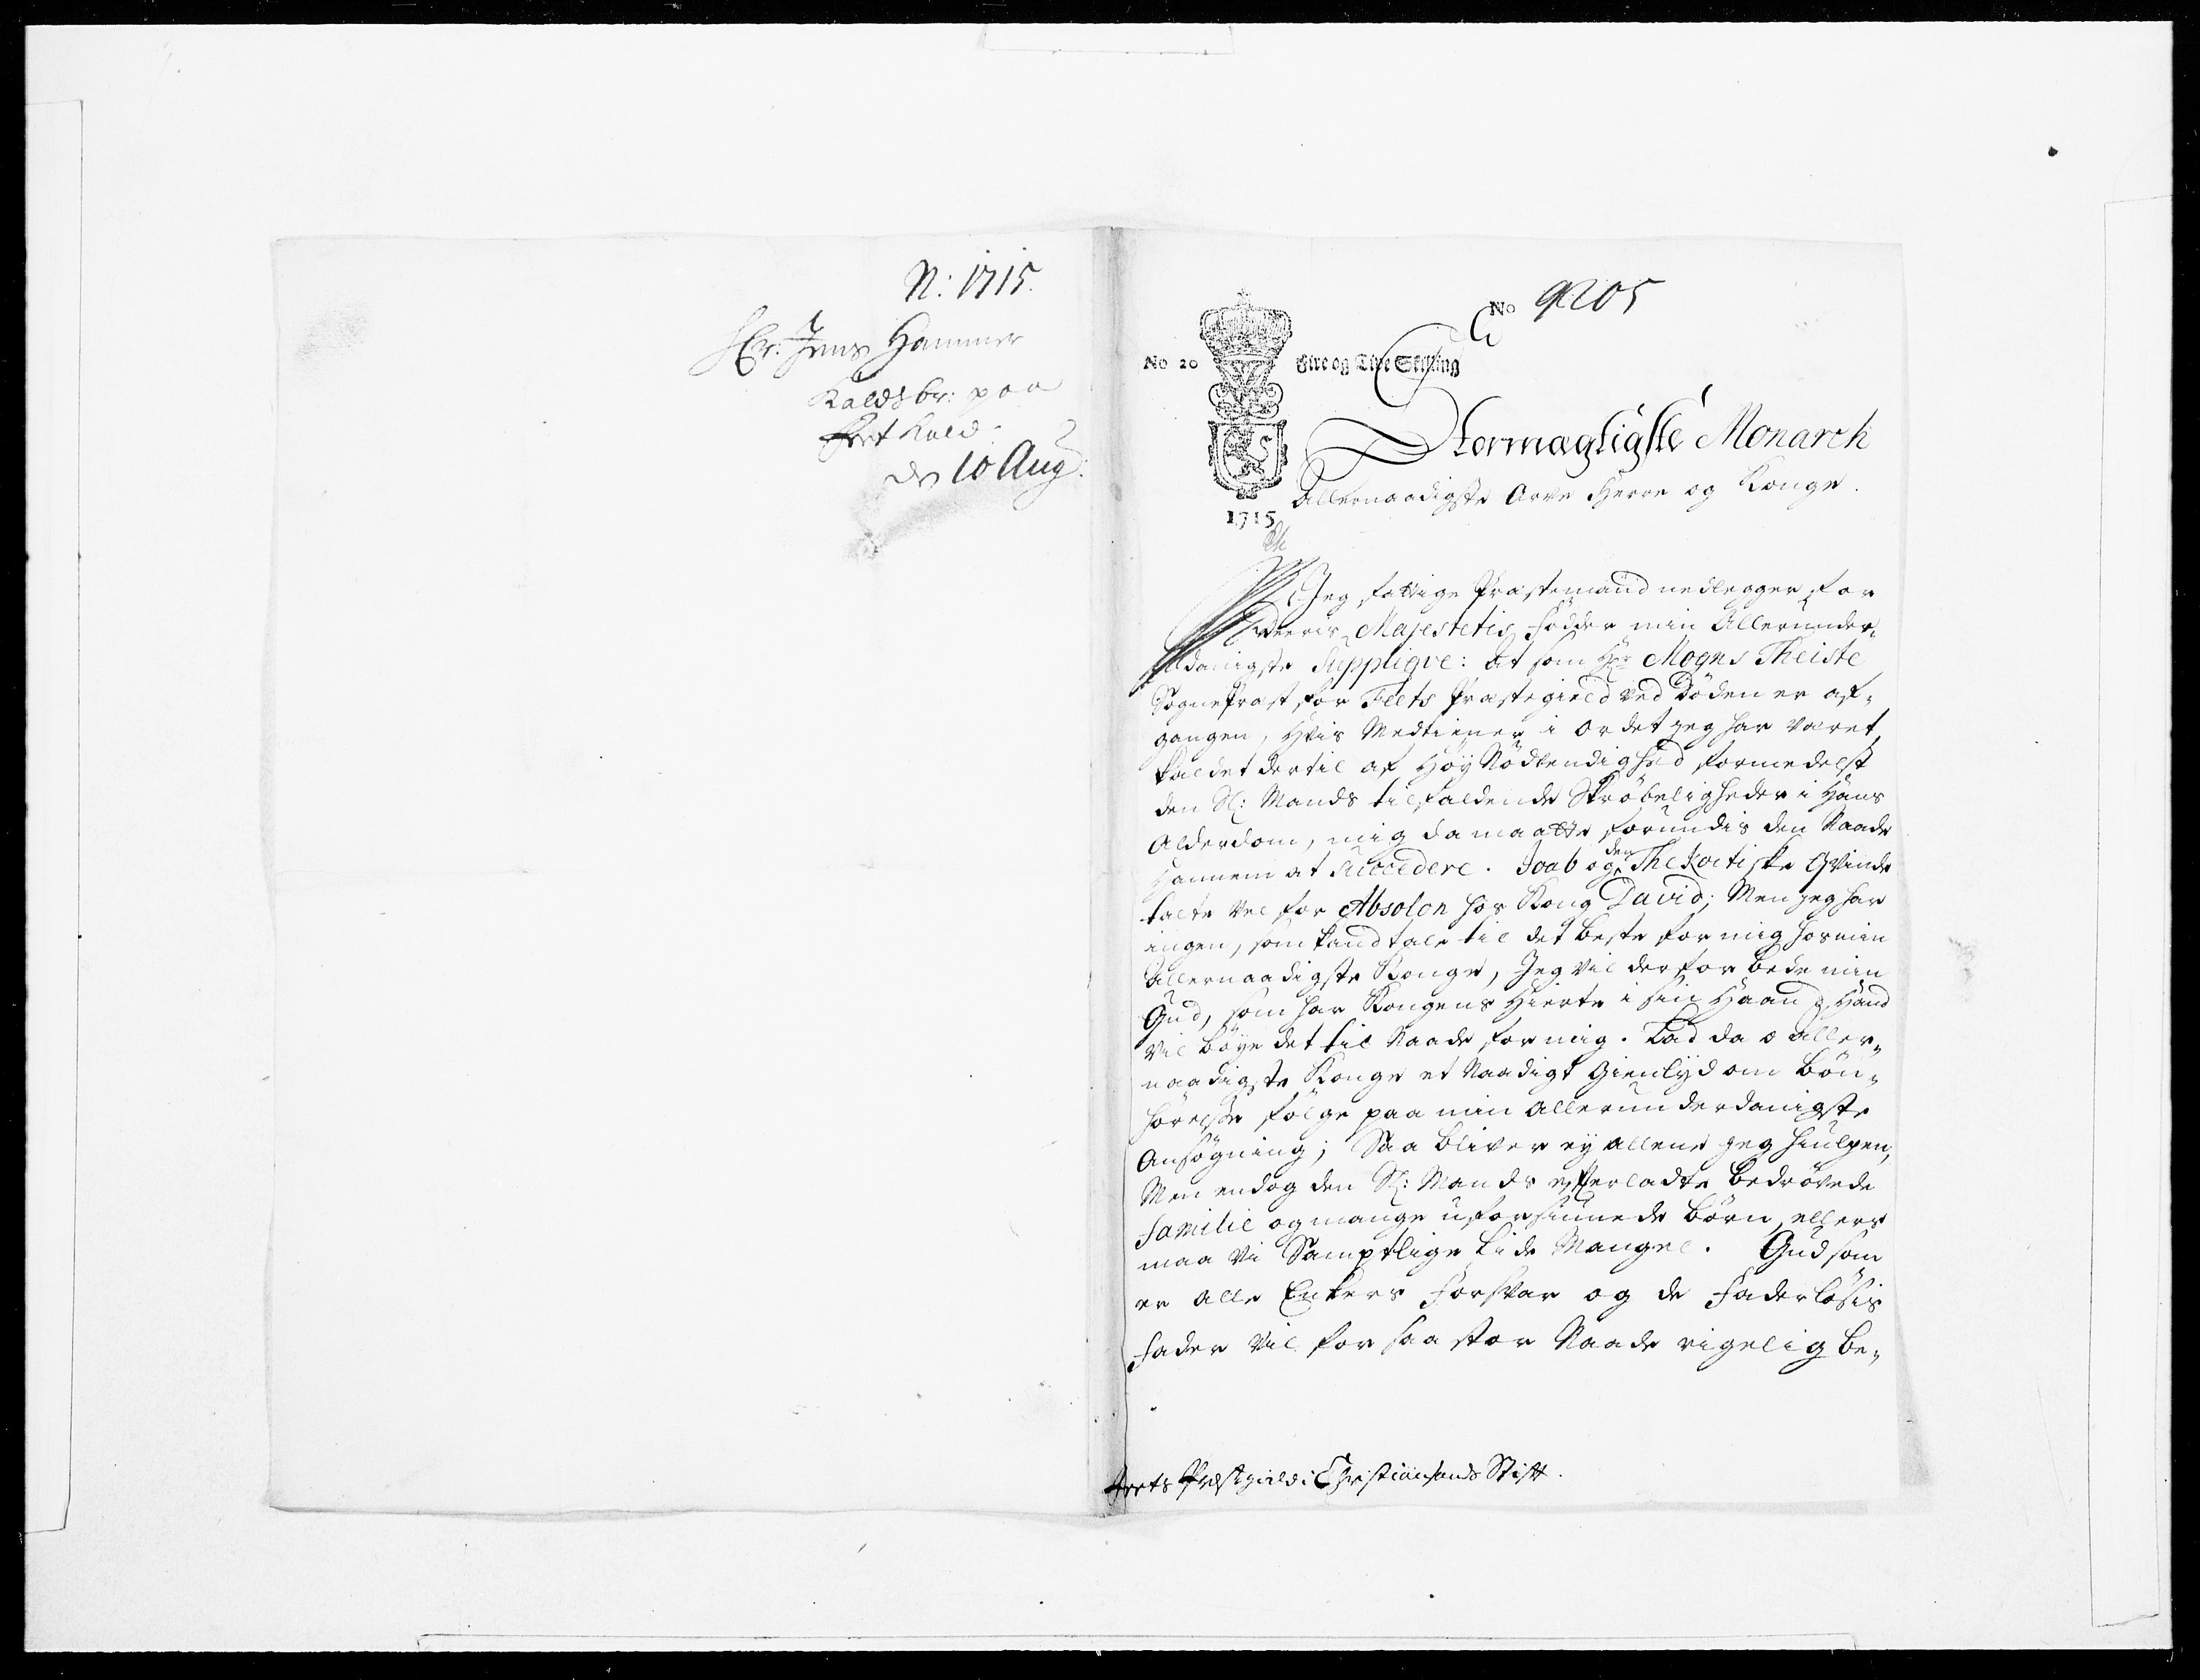 N: 1715.
Hr: Jens Hammer
Kaldsbr: paa
Feet Kald.
d 10 Aug:
No 9205
No 20 Fire og Tive Skilling
1715
Stormægtigste Monarch
Allernaadigste Arve Herre og Konge.
Jeg fattige Præstemand nedlegger for
Deeris Majestetis fødder min Allerunder-
danigste Supplique: At som Hr Mogns Theiste
Sognepræst for Feets Præstegield ved Døden er af-
gangen, Hvis Medtiener i Ordet jeg har været,
kaldet dertil af Høy Nødvendighed formedelst
den Sl: Mands tilfaldende Skrøbeligheder i Hans
Alderdom, mig da maatte forundis den Naade
Hannem at succedere. Joab og den Thekoitiske Qvinde
talte vel for Absolon hos Kong David; Men jeg har
ingen, som kand tale til det beste for mig hos min
Allernaadigste Konge, Jeg vil derfor bede min
Gud, som har Kongens Hierte i sin Haand, Hand
vil bøye det til Naade for mig. Lad da o aller-
naadigste Konge et Naadigt Gienlyd om Bøn-
hørelse følge paa min allerunderdanigste
Ansøgning; Saa bliver ey allene jeg hiulpen,
Men endog den Sl: Mands efterladte bedrøvede
familie og mange uforsiunede Børn, ellers
maa vi Samptlige lide Mangel. Gud som
er alle Enkers Forsvar og de Faderløsis
Fader vil for saa stor Naade rigelig be-
Feets Præstegield i Christiansands Stift.